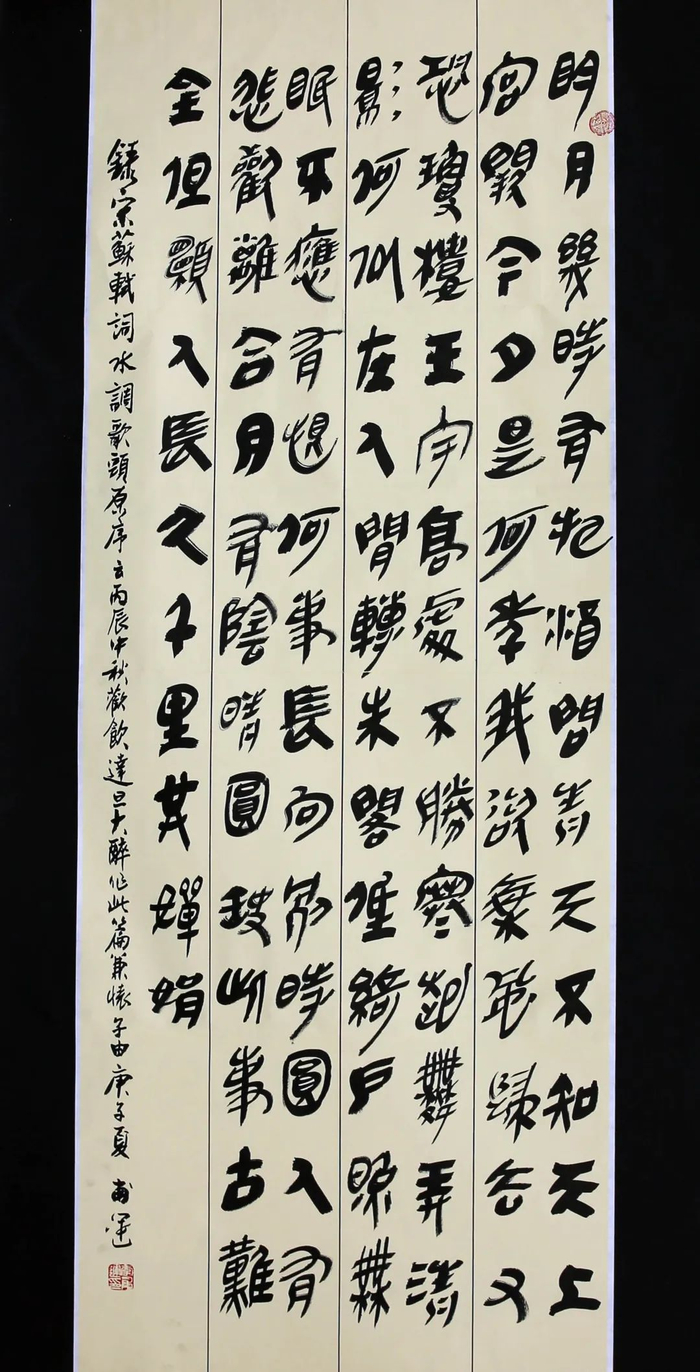 明月幾時有把酒問青天不知天上
宮闕今夕是何年我欲乘風歸去又
恐瓊樓玉宇高處不勝寒起舞弄清
影何似在人間轉朱閣低綺戶照無
眠不應有恨何事長向別時圓人有
悲歡離合月有陰晴圓缺此事古難
全但願人長久千里共嬋娟
錄宋蘇軾詞水調歌頭原序云丙辰中秋歡飲達旦大醉作此篇兼懷子由庚子夏